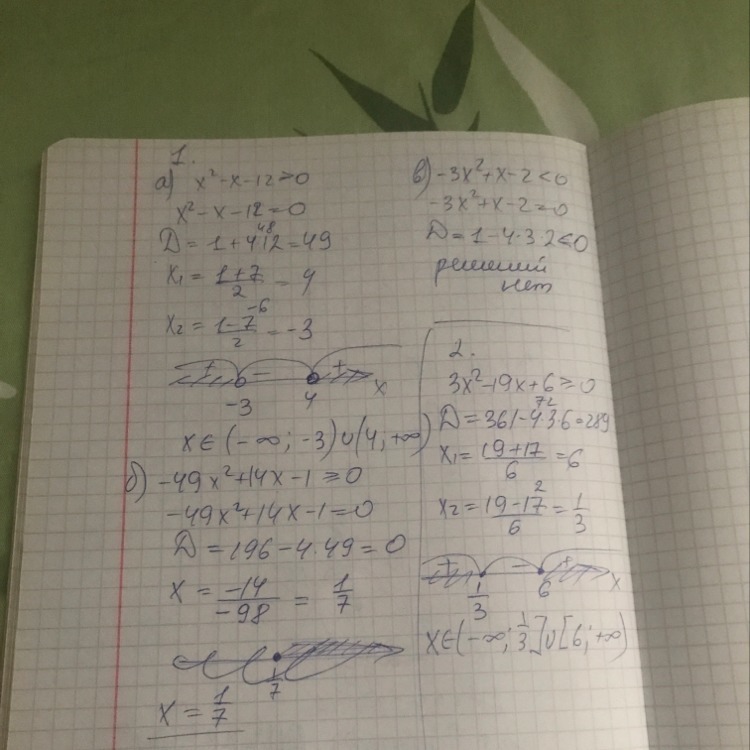 1.
а) x² - x - 12 > 0
x² - x - 12 = 0
D = 1 + 4·12 = 49
48
x₁ = (1+7)/2 = 4
x₂ = (1-7)/2 = -3
-6
+ - + x
-3 4
x ∈ (-∞; -3) ∪ (4; +∞)
б) -49x² + 14x - 1 ≥ 0
-49x² + 14x - 1 = 0
D = 196 - 4·49 = 0
x = -14/-98 = 1/7
1/7
x = 1/7
в) -3x² + x - 2 < 0
-3x² + x - 2 = 0
D = 1 - 4·3·2 < 0
решений
нет
2.
3x² - 19x + 6 ≥ 0
72
D = 361 - 4·3·6 = 289
x₁ = (19+17)/6 = 6
2
x₂ = (19-17)/6 = 1/3
+ - + x
1/3 6
x ∈ (-∞; 1/3] ∪ [6; +∞)